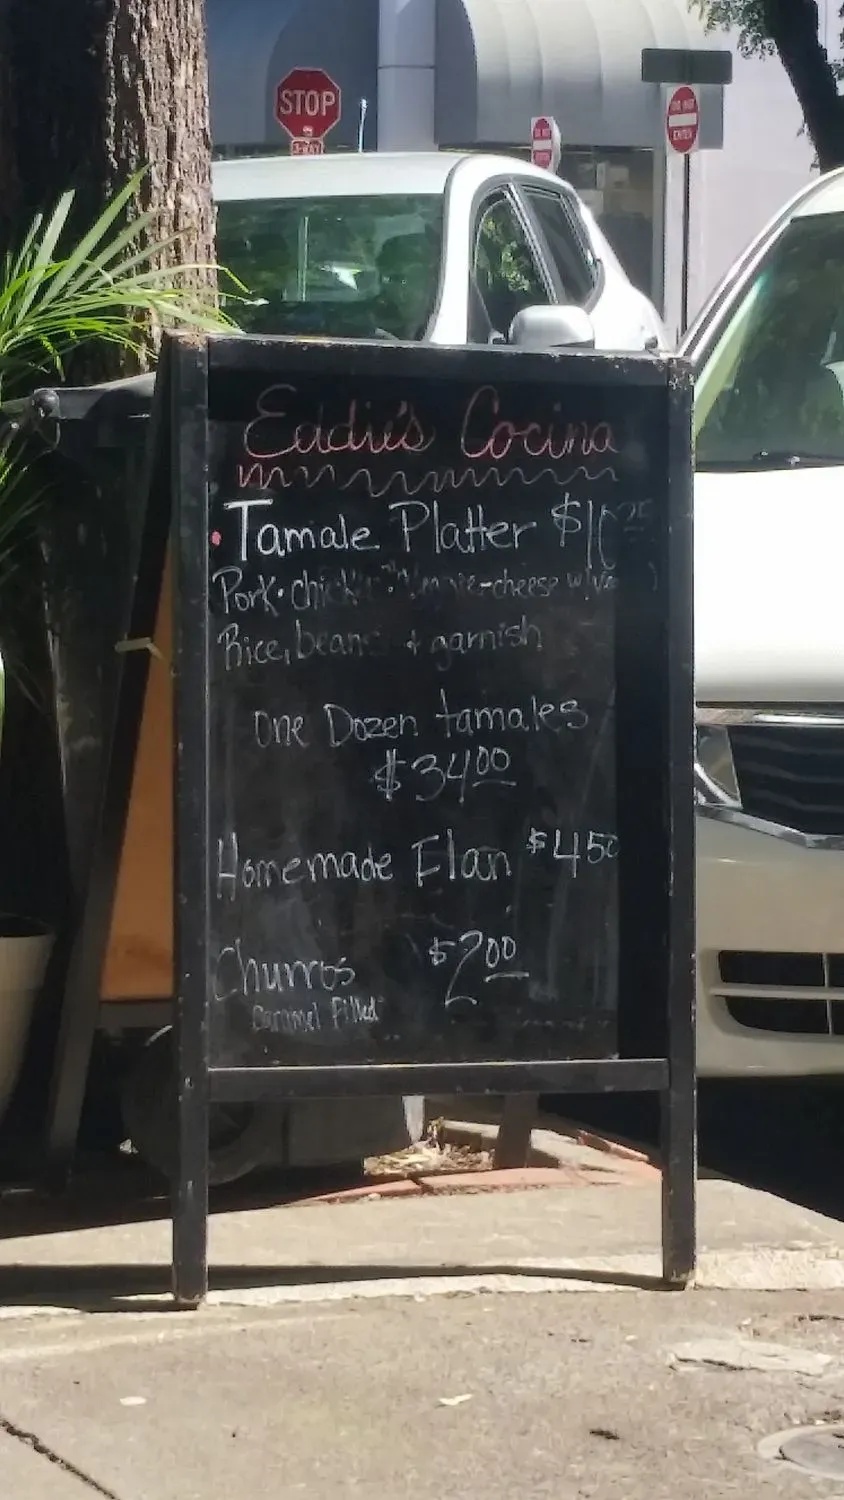 STOP
3-WAY
DO NOT
ENTER
DO NOT
ENTER
Eddie's Cocina
Tamale Platter $10.25
Pork · chicken -cheese w/
Rice, beans + garnish
One Dozen tamales
$34 00
Homemade Flan $4 50
Churros $2 00
Caramel Filled